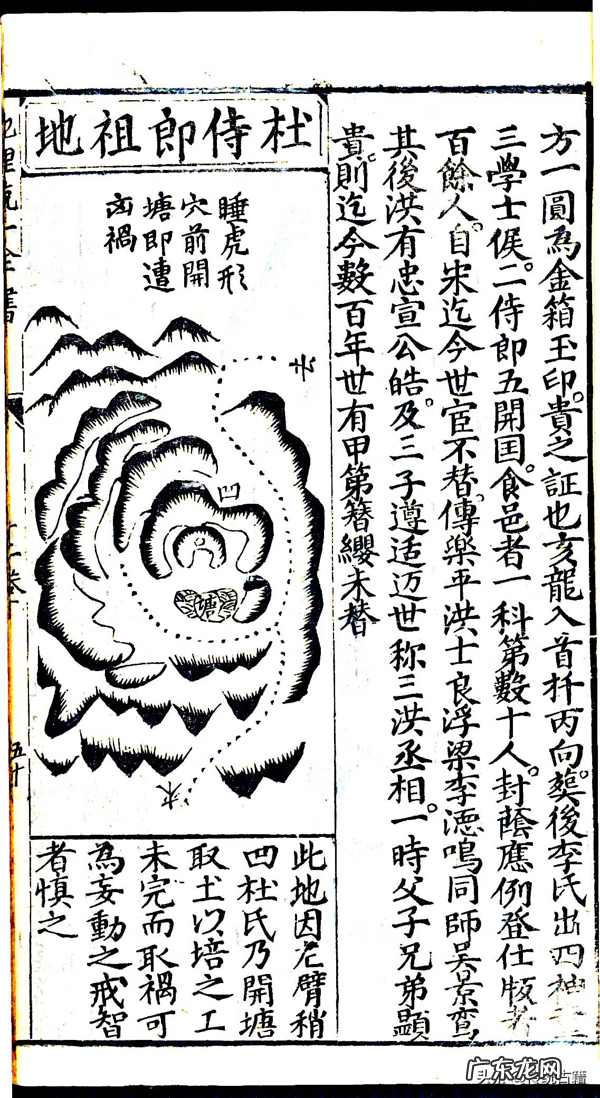 方一圓為金箱玉印。貴之証也亥龍入首扦丙向。葬後李氏出四神
三學士侯。二侍郎五開国。食邑者一科第數十人。封蔭應例登仕版者
百餘人。自宋迄今世宦不替。傳樂平洪士良浮梁李德鳴同師吴景鸞
其後洪有忠宣公皓。及三子遵适迈世称三洪丞相。一時父子兄弟顯
貴。則迄今數百年世有甲第簪纓未替
杜侍郎祖地
睡虎形
穴前開
塘即遭
凶禍
凹
塘
未
此地因左臂稍
凹杜氏乃開塘
取土以培之工
未完而取禍可
為妄動之戒智
者慎之
五十
广东龙网